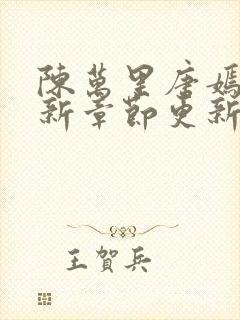 陳萬里唐嫣
新章節更新
王賀兵